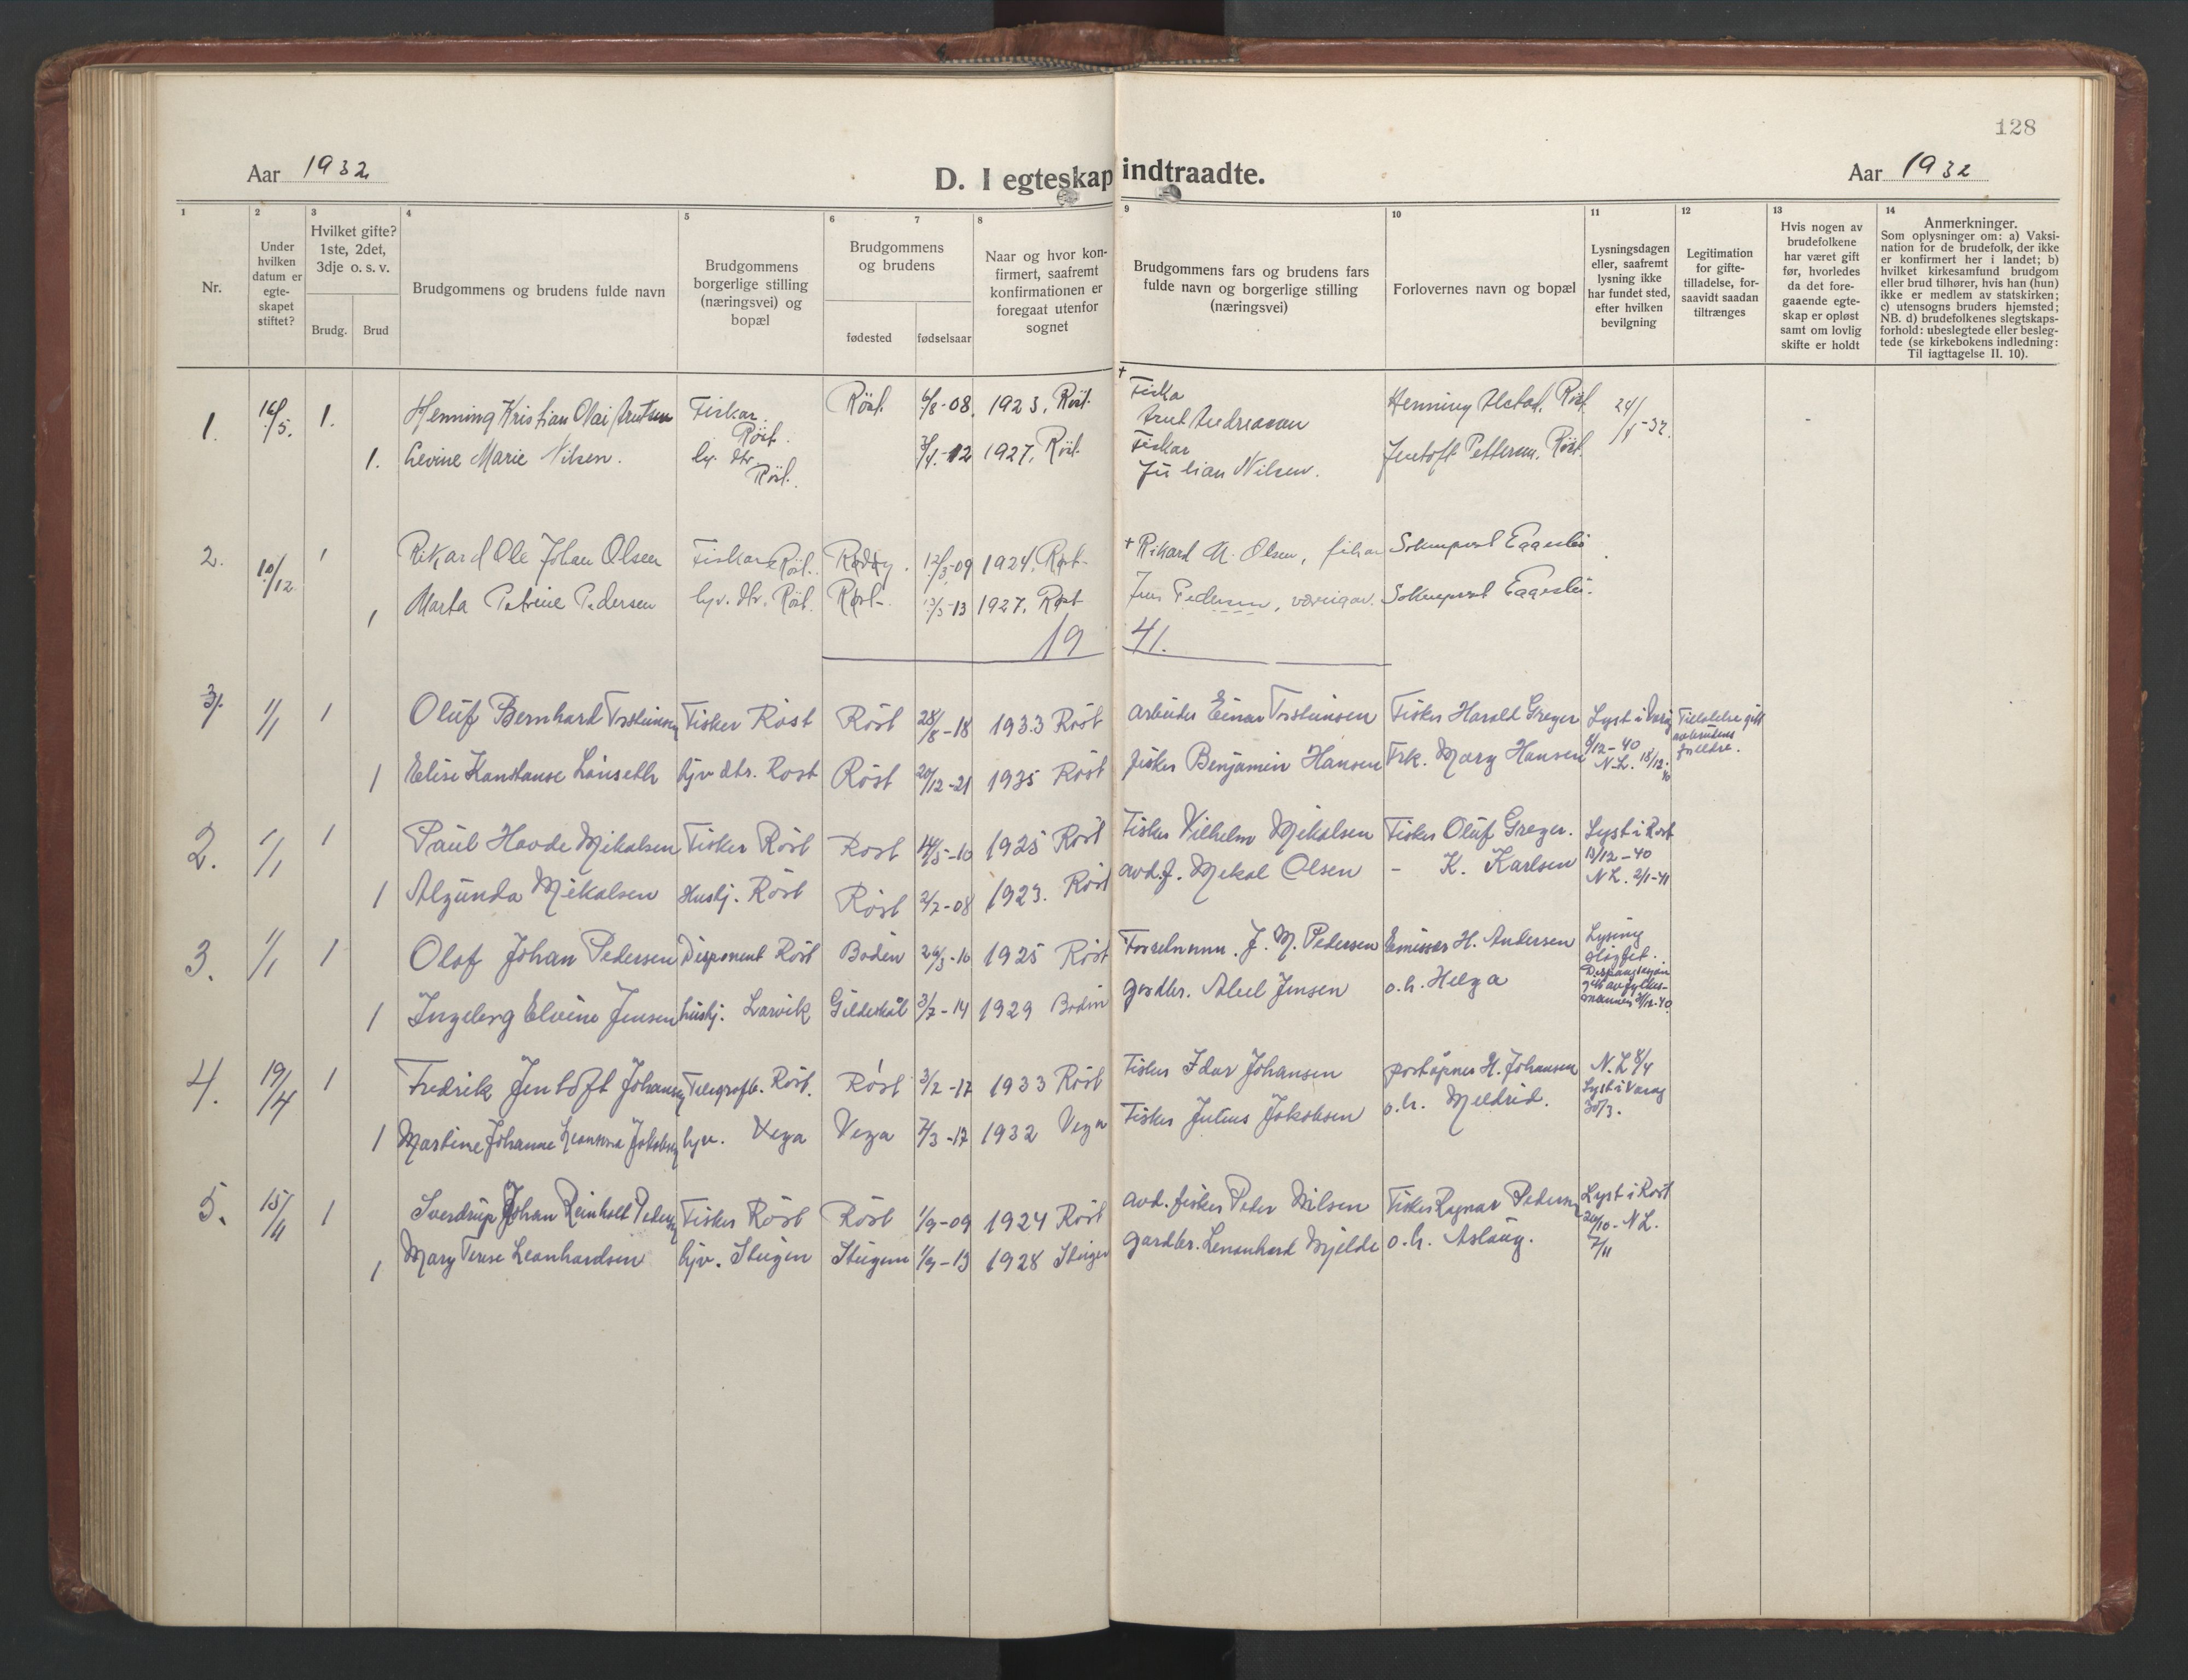 128
Aar 1932
D. I egteskap indtraadte.
Aar 1932
1 2 3 4 5 6 7 8 9 10 11 12 13 14
Nr.
Under hvilken datum er egte-skapet stiftet?
Hvilket gifte? 1ste, 2det, 3dje o. s. v.
Brudg. Brud
Brudgommens og brudens fulde navn
Brudgommens borgerlige stilling (næringsvei) og bopæl
Brudgommens og brudens
fødested fødselsaar
Naar og hvor kon-firmert, saafremt konfirmationen er foregaat utenfor sognet
Brudgommens fars og brudens fars fulde navn og borgerlige stilling (næringsvei)
Forlovernes navn og bopæl
Lysningsdagen eller, saafremt lysning ikke har fundet sted, efter hvilken bevilgning
Legitimation for gifte-tilladelse, for-saavidt saadan tiltrænges
Hvis nogen av brudefolkene har været gift før, hvorledes da det fore-gaaende egte-skap er opløst samt om lovlig skifte er holdt
Anmerkninger.
Som oplysninger om: a) Vaksi-nation for de brudefolk, der ikke er konfirmert her i landet; b) hvilket kirkesamfund brudgom eller brud tilhører, hvis han (hun) ikke er medlem av statskirken; c) utensogns bruders hjemsted; NB. d) brudefolkenes slegtskaps-forhold: ubeslegtede eller besleg-tede (se kirkebokens indledning: Til iagttagelse II. 10).
1. 16/5. 1. Henning Kristian Olai Arntsen Fiskar Røst. Røst. 6/8-08. 1923. Røst. + Fiskar Arnt Andreassen Henning Røst 24/
1. Levine Marie Nilsen. Røst. -12 1927. Røst. Fiskar Julian Nilsen. Jentoft Pettersen. Røst.
2. 10/12 1 Rikard Ole Johan Olsen Fiskar Røst. 12/3-09 1924. Røst. + Rikard Olsen, fiskar Sokneprest
1 Marta Petrine Pedersen Røst. Røst. -13 1927. Røst Jens Pedersen, Sokneprest
19 41.
1/1 1 Oluf Bernhard Torsteinsen Fisker Røst Røst 28/8-18 1933 Røst arbeider Einar Torsteinsen Fisker Harald Greger Lyst i Værøy 8/12-40 Tillatelse gitt av brudens foreldre.
1 Elise Konstanse Lønseth hjv dtr. Røst Røst 20/12-21 1935 Røst fisker Benjamin Hansen Frk. Mary Hansen N.L. 18/12-40
2. 1/1 1 Paul Hovde Mikalsen Fisker Røst Røst 14/5-10 1925 Røst Fisker Vilhelm Mikalsen Fisker Oluf Greger. Lyst i Røst 13/12-40
1 Algunda Mikalsen Hushj. Røst Røst 2/7-08 1923. Røst avd. f. Mekal Olsen - K. Karlsen N.L. 2/1-41
3. 1/1 1 Olaf Johan Pedersen Disponent Røst Bodin 1925 Røst J. M. Pedersen Emissær H. Andersen Lysing sløyfet.
1 Ingeborg Elvine Jensen hushj. Larvik Gildeskål 3/7-14 1929 Bodin gardbr. Abel Jensen o.h. Helga
4. 19/4 1 Fredrik Jentoft Johansen Telegrafb. Røst. Røst 3/2-17 1933 Røst Fisker Idar Johansen poståpner H. Johansen N.L 8/4
1 Martine Johanne Jakobsen hjv. Vega Vega 7/3-17 1932 Vega Fisker Julius Jakobsen o.h. Meldrid. Lyst i Værøy 30/3.
5. 15/11 1 Sverdrup Johan Reinholt Pedersen Fisker Røst Røst 1/9-09 1924 Røst avd. fisker Peder Nilsen Fisker Ragnar Pedersen Lyst i Røst 20/10 - N.L. 7/11
1 Mary Terese Leonhardsen hjv. Steigen Steigen 1/9-13 1928 Steigen gardbr. Leonhard Mjelde o.h. Aslaug.